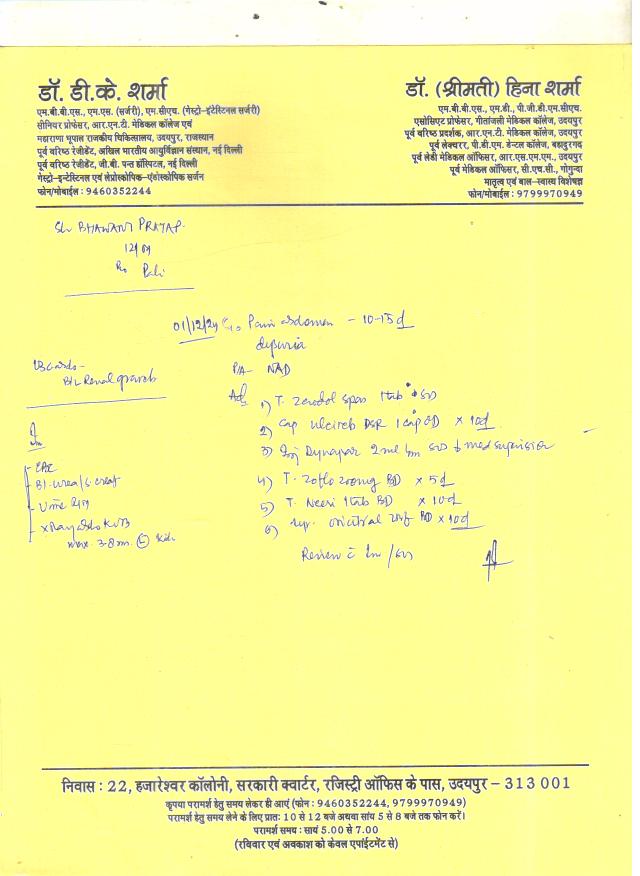 डॉ. डी.के. शर्मा
एम.बी.बी.एस., एम.एस. (सर्जरी), एम.सीएच. (गेस्ट्रो-इंटेस्टिनल सर्जरी)
सीनियर प्रोफेसर, आर.एन.टी. मेडिकल कॉलेज एवं
महाराणा भूपाल राजकीय चिकित्सालय, उदयपुर, राजस्थान
पूर्व वरिष्ठ रेजीडेंट, अखिल भारतीय आयुर्विज्ञान संस्थान, नई दिल्ली
पूर्व वरिष्ठ रेजीडेंट, जी.बी. पन्त हॉस्पिटल, नई दिल्ली
गेस्ट्रो-इन्टेस्टिनल एवं लेप्रोस्कोपिक-एंडोस्कोपिक सर्जन
फोन/मोबाईल : 9460352244
डॉ. (श्रीमती) हिना शर्मा
एम.बी.बी.एस., एम.डी., पी.जी.डी.एम.सीएच.
एसोसिएट प्रोफेसर, गीतांजली मेडिकल कॉलेज, उदयपुर
पूर्व वरिष्ठ प्रदर्शक, आर.एन.टी. मेडिकल कॉलेज, उदयपुर
पूर्व लेक्चरर, पी.डी.एम. डेन्टल कॉलेज, बहादुरगढ़
पूर्व लेडी मेडिकल ऑफिसर, आर.एस.एम.एम., उदयपुर
पूर्व मेडिकल ऑफिसर, सी.एच.सी., गोगुन्दा
मातृत्व एवं बाल-स्वास्थ्य विशेषज्ञ
फोन/मोबाईल : 9799970949
BHAWANI PRATAP
R/o Pali
01/12/24 C/o Pain abdomen - 10-15d
dysuria
P/A- NAD
B/L Renal
Adv
1) T. Zerodol spas 1tab
2) Cap DSR 1cap OD x 10d
3) Inj Dynapar 2ml Im med supervision
4) T. Zoflo 200mg BD x 5d
5) T. Neeri 1tab BD x 10d
6) Syp. BD x 10d
CBC
Bl. urea/S. creat
Urine
X Ray KUB
3-8mm (L)
Review c̄
निवास : 22, हजारेश्वर कॉलोनी, सरकारी क्वार्टर, रजिस्ट्री ऑफिस के पास, उदयपुर – 313 001
कृपया परामर्श हेतु समय लेकर ही आएं (फोन : 9460352244, 9799970949)
परामर्श हेतु समय लेने के लिए प्रातः 10 से 12 बजे अथवा सांय 5 से 8 बजे तक फोन करें।
परामर्श समय : सायं 5.00 से 7.00
(रविवार एवं अवकाश को केवल एपाईंटमेंट से)